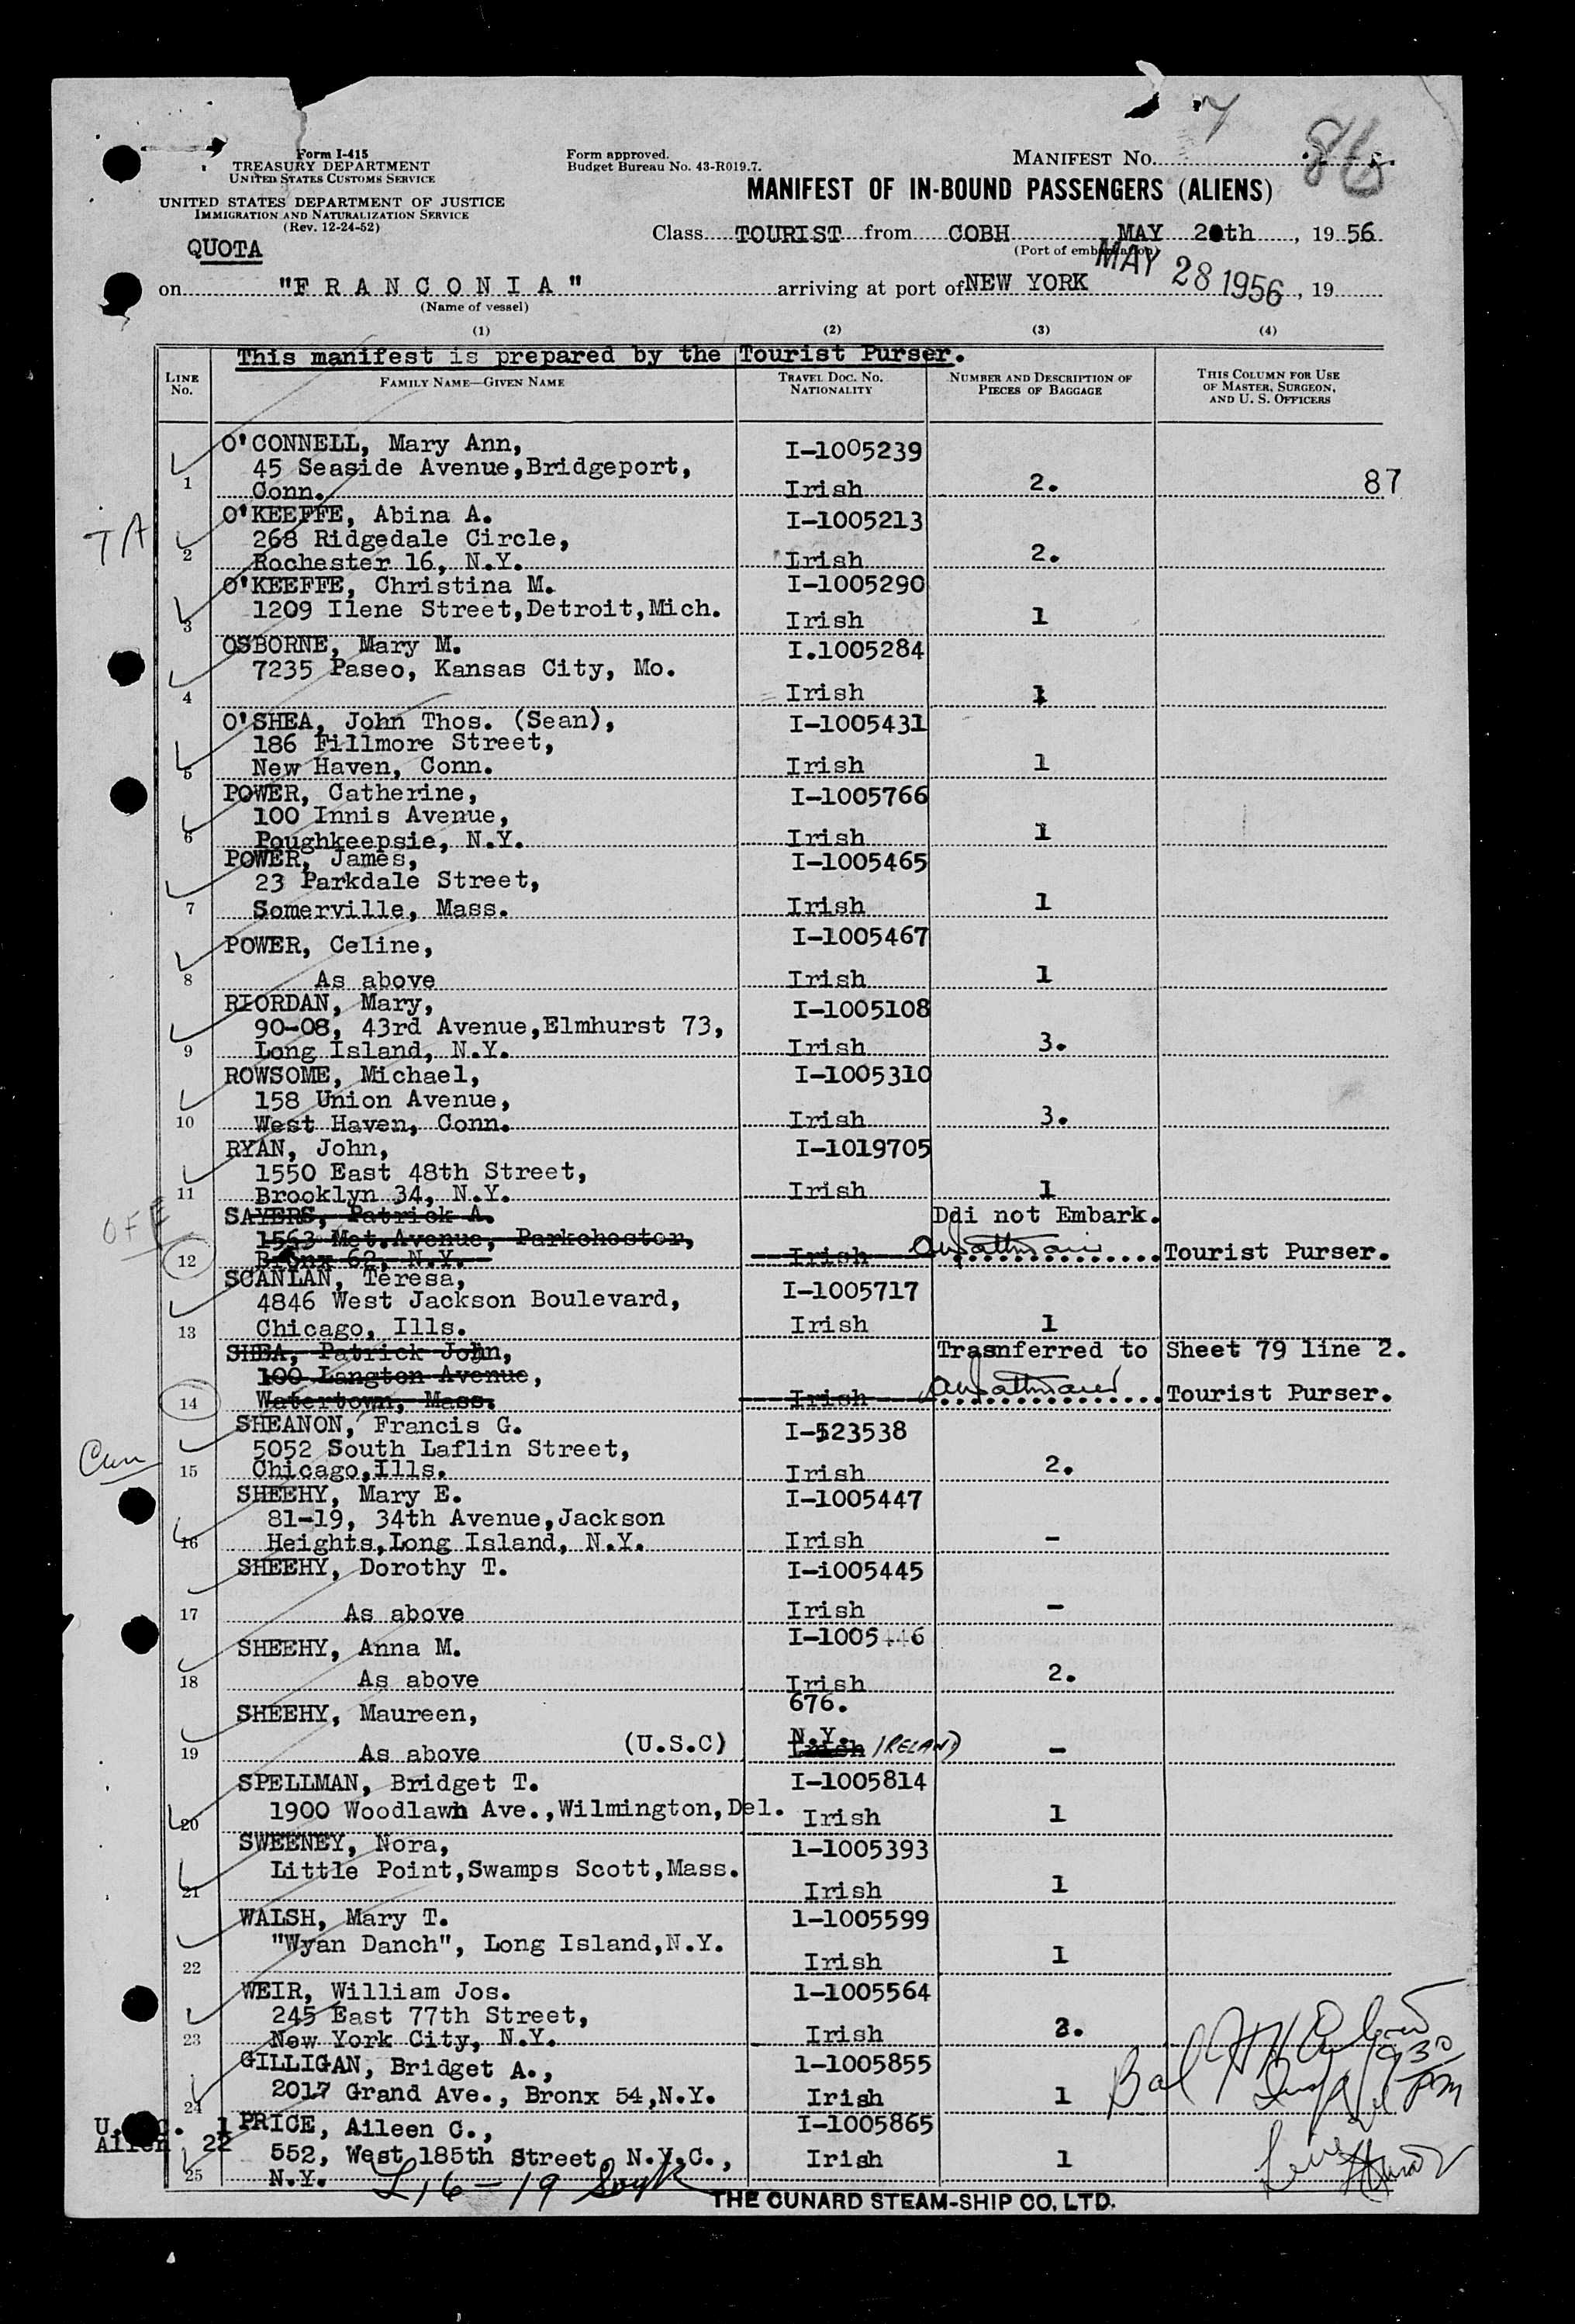 7
86
Form I-415
TREASURY DEPARTMENT
UNITED STATES CUSTOMS SERVICE
UNITED STATES DEPARTMENT OF JUSTICE
IMMIGRATION AND NATURALIZATION SERVICE
(Rev. 12-24-52)
Form approved.
Budget Bureau No. 43-R019.7.
MANIFEST NO.
MANIFEST OF IN-BOUND PASSENGERS (ALIENS)
QUOTA
Class TOURIST from COBH MAY 20th, 1956
(Port of embarkation)
on "FRANCONIA" arriving at port of NEW YORK MAY 28 1956, 19
(Name of vessel)
(1) (2) (3) (4)
This manifest is prepared by the Tourist Purser.
LINE No.
FAMILY NAME—GIVEN NAME
TRAVEL DOC. NO. NATIONALITY
NUMBER AND DESCRIPTION OF PIECES OF BAGGAGE
THIS COLUMN FOR USE OF MASTER, SURGEON, AND U. S. OFFICERS
O'CONNELL, Mary Ann, I-1005239
45 Seaside Avenue,Bridgeport,
1 Conn. Irish 2. 87
O'KEEFFE, Abina A. I-1005213
TA 268 Ridgedale Circle,
2 Rochester 16, N.Y. Irish 2.
O'KEEFFE, Christina M. I-1005290
1209 Ilene Street,Detroit,Mich.
3 Irish 1
OSBORNE, Mary M. I.1005284
7235 Paseo, Kansas City, Mo.
4 Irish 1
O'SHEA, John Thos. (Sean), I-1005431
186 Fillmore Street,
5 New Haven, Conn. Irish 1
POWER, Catherine, I-1005766
100 Innis Avenue,
6 Poughkeepsie, N.Y. Irish 1
POWER, James, I-1005465
23 Parkdale Street,
7 Somerville, Mass. Irish 1
POWER, Celine, I-1005467
8 As above Irish 1
RIORDAN, Mary, I-1005108
90-08, 43rd Avenue,Elmhurst 73,
9 Long Island, N.Y. Irish 3.
ROWSOME, Michael, I-1005310
158 Union Avenue,
10 West Haven, Conn. Irish 3.
RYAN, John, I-1019705
1550 East 48th Street,
11 Brooklyn 34, N.Y. Irish 1
OFF SAYERS, Patrick A. Ddi not Embark.
1563 Met.Avenue, Parkchester,
12 Bronx 62, N.Y. Irish Tourist Purser.
SCANLAN, Teresa, I-1005717
4846 West Jackson Boulevard,
13 Chicago, Ills. Irish 1
SHEA, Patrick John, Trasnferred to Sheet 79 line 2.
100 Langton Avenue,
14 Watertown, Mass. Irish Tourist Purser.
SHEANON, Francis G. I-523538
5052 South Laflin Street,
15 Chicago,Ills. Irish 2.
SHEEHY, Mary E. I-1005447
81-19, 34th Avenue,Jackson
16 Heights,Long Island, N.Y. Irish -
SHEEHY, Dorothy T. I-i005445
17 As above Irish -
SHEEHY, Anna M. I-1005446
18 As above Irish 2.
SHEEHY, Maureen, 676.
(U.S.C) N.Y.
19 As above Irish IRELAND -
SPELLMAN, Bridget T. I-1005814
20 1900 Woodlawn Ave.,Wilmington,Del. Irish 1
SWEENEY, Nora, 1-1005393
Little Point,Swamps Scott,Mass.
21 Irish 1
WALSH, Mary T. 1-1005599
"Wyan Danch", Long Island,N.Y.
22 Irish 1
WEIR, William Jos. 1-1005564
245 East 77th Street,
23 New York City, N.Y. Irish 3.
GILLIGAN, Bridget A., 1-1005855
24 2017 Grand Ave., Bronx 54,N.Y. Irish 1
U. C. 1 PRICE, Aileen C., I-1005865
Alien 22
552, West 185th Street, N.Y.C., Irish 1
25 N.Y.
L 16-19
930 PM
THE CUNARD STEAM-SHIP CO. LTD.